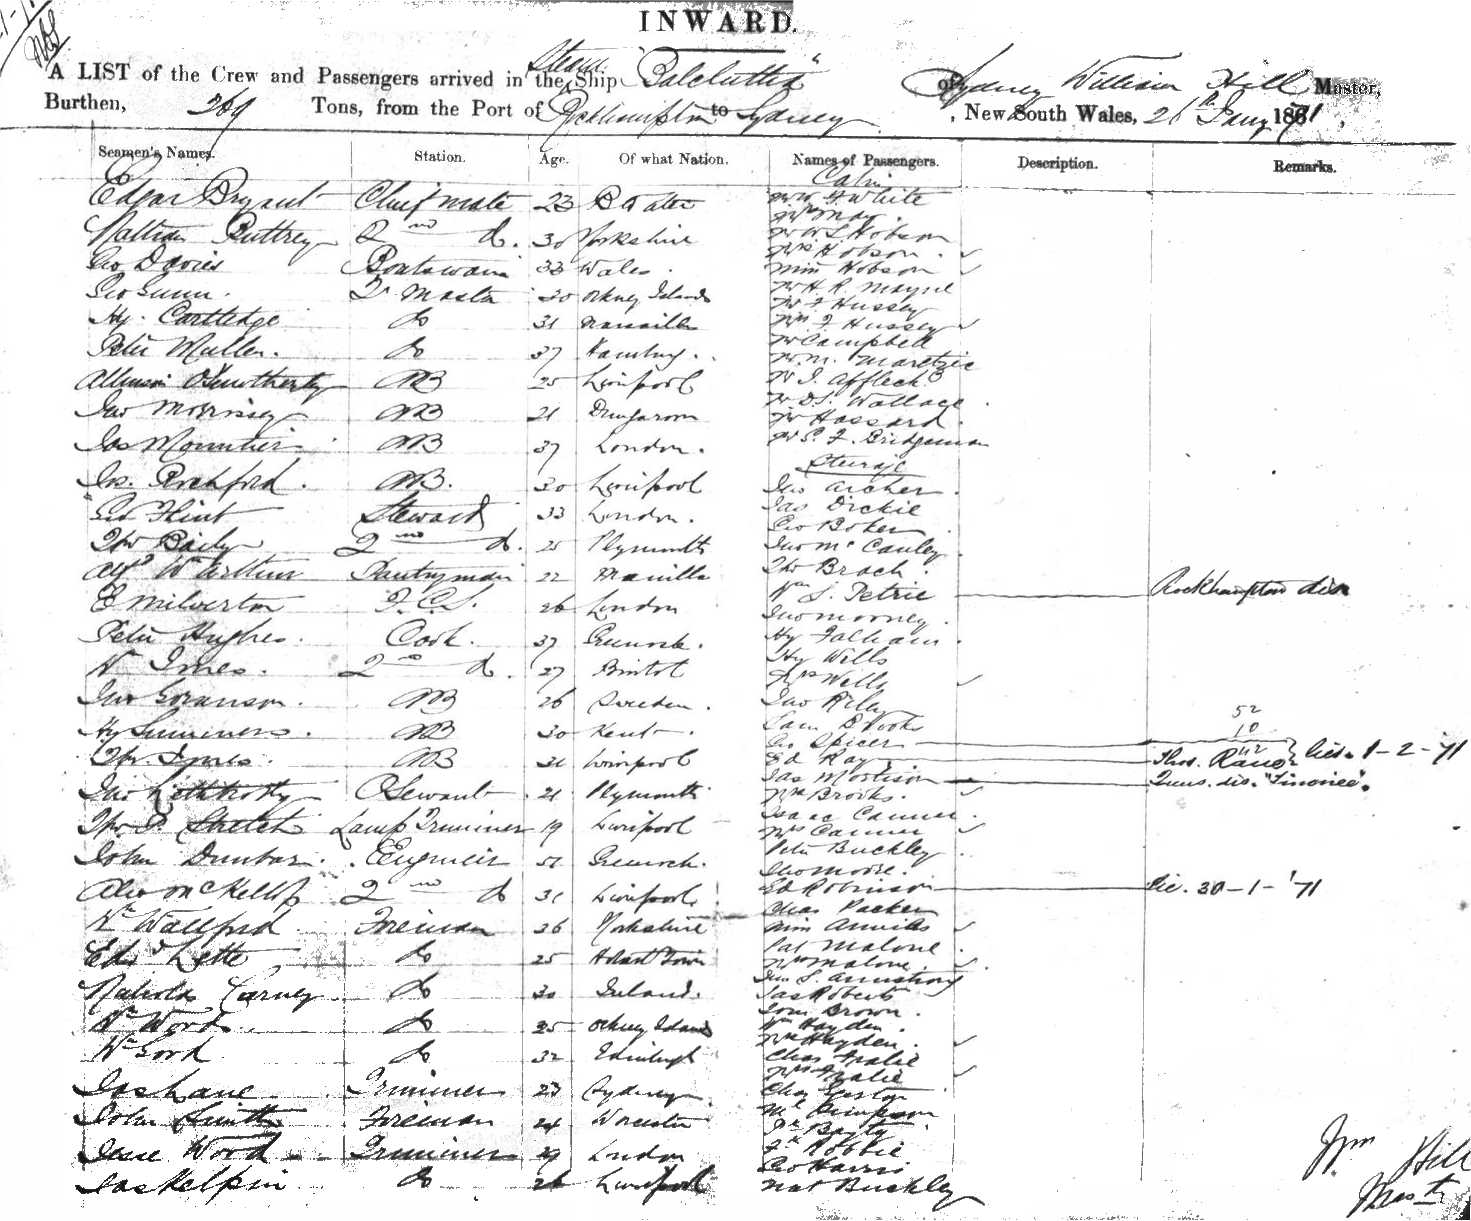 INWARD.
A LIST of the Crew and Passengers arrived in the Steam Ship "Balclutha" of Sydney William Hill Master,
Burthen, 269 Tons, from the Port of Rockhampton to Sydney, New South Wales, 26th Jany 1871,
Seamen's Names. Station. Age. Of what Nation. Names of Passengers. Description. Remarks.
Cabin
Edgar Bryant Chief mate 23 Mr W F White
Buttrey 2nd do. 30 Yorkshire Mr W L Hobson
Mrs Hobson
Geo Davies Boatswain 33 Wales. Miss Hobson
Geo Gunn. Qr Master 30 Orkney Islands Mr H. R. Mayne
Mr F Hussey
Hy. Cartledge do 31 Mrs F Hussey
Mr Campbell
Peter Mullen. do 37 Hamburg. Mr M.
AB 25 Liverpool Mr J. Affleck
Mr D S. Wallace
Jno Morrissey AB 21 Mr Hassard.
Jas Mountier AB 37 London. Mr P. F. Bridgeman
Steerage
Jos. Rochford. AB. 30 Liverpool Jno Archer.
Jas Dickie
Geo Flint Steward 33 London. Geo Boker
Thos Baily 2nd do. 25 Plymouth Jno McCauley
Alfd Wm Arthur Pantryman 22 Manilla Thos Brach.
E Milverton F.C.S. 26 London Wm S. Petrie Rockhampton dis
Jno Mooney.
Peter Hughes. Cook. 37 Greenock. Hy Falham.
Hy Wells
Wm Innes. 2nd do. 27 Bristol Mrs Wells
Jno Soranson. AB 26 Sweden. Jno Riley
Sam Brooks 52
Hy Summers. AB 30 Kent. Geo Spicer 10
Thos Innes. AB 31 Liverpool Ed Ray Thos. 1-2-71
Jas Morrison Trans. dis.
Jno OS 21 Plymouth Mrs Brooks.
Isaac Canner.
Thos P. Stretch Lamp Trimmer 19 Liverpool Mrs Canner
Peter Buckley
John Dunbar. Engineer 51 Greenock. Jno Moore.
Alex McKellop 2nd do 31 Liverpool Ed Robinson 30-1-'71
Chas Packer
Wm Wallford Fireman 36 Yorkshire Miss
Pat Malone.
Edwd Lette do 25 Hobart Town Mrs Malone
Jno S. Armstrong
Nicholas Carney do 30 Ireland. Jas Roberts
Tom Brown.
Wm Woods. do 25 Orkney Islands Wm Hayden.
Mrs Hayden.
Wm Gord do 32 Edinburgh Chas
Mrs
Jas Lane Trimmer 23 Sydney. Chas Easton
Mr Simpson
John Smith Fireman 24 Worcester
Robbie
Jesse Wood Trimmer 29 London Geo Harris
Jas Kelpin do 26 Liverpool Nat Buckley
Wm Hill
Master